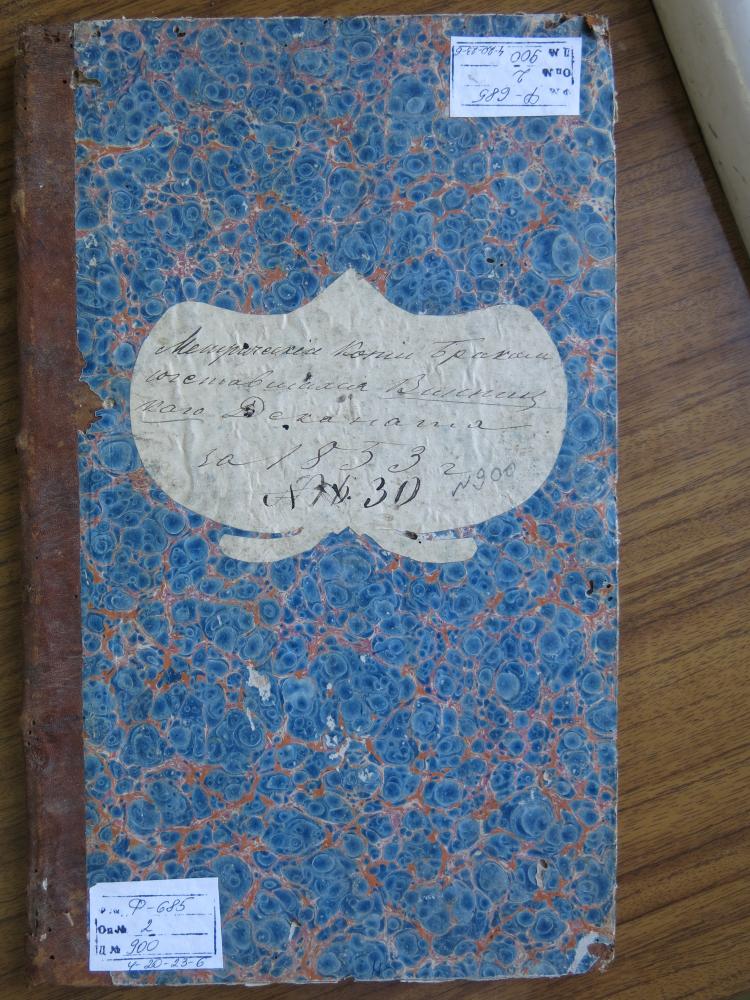 Ф-685
Оп № 2
Д № 900
4-20-23-6
Метрическія Копіи Бракомъ
сочетавшихся Винниц
каго Деканата
за 1853 г
№ 30 N900
Ф-685
Оп № 2
Д № 900
4-20-23-6